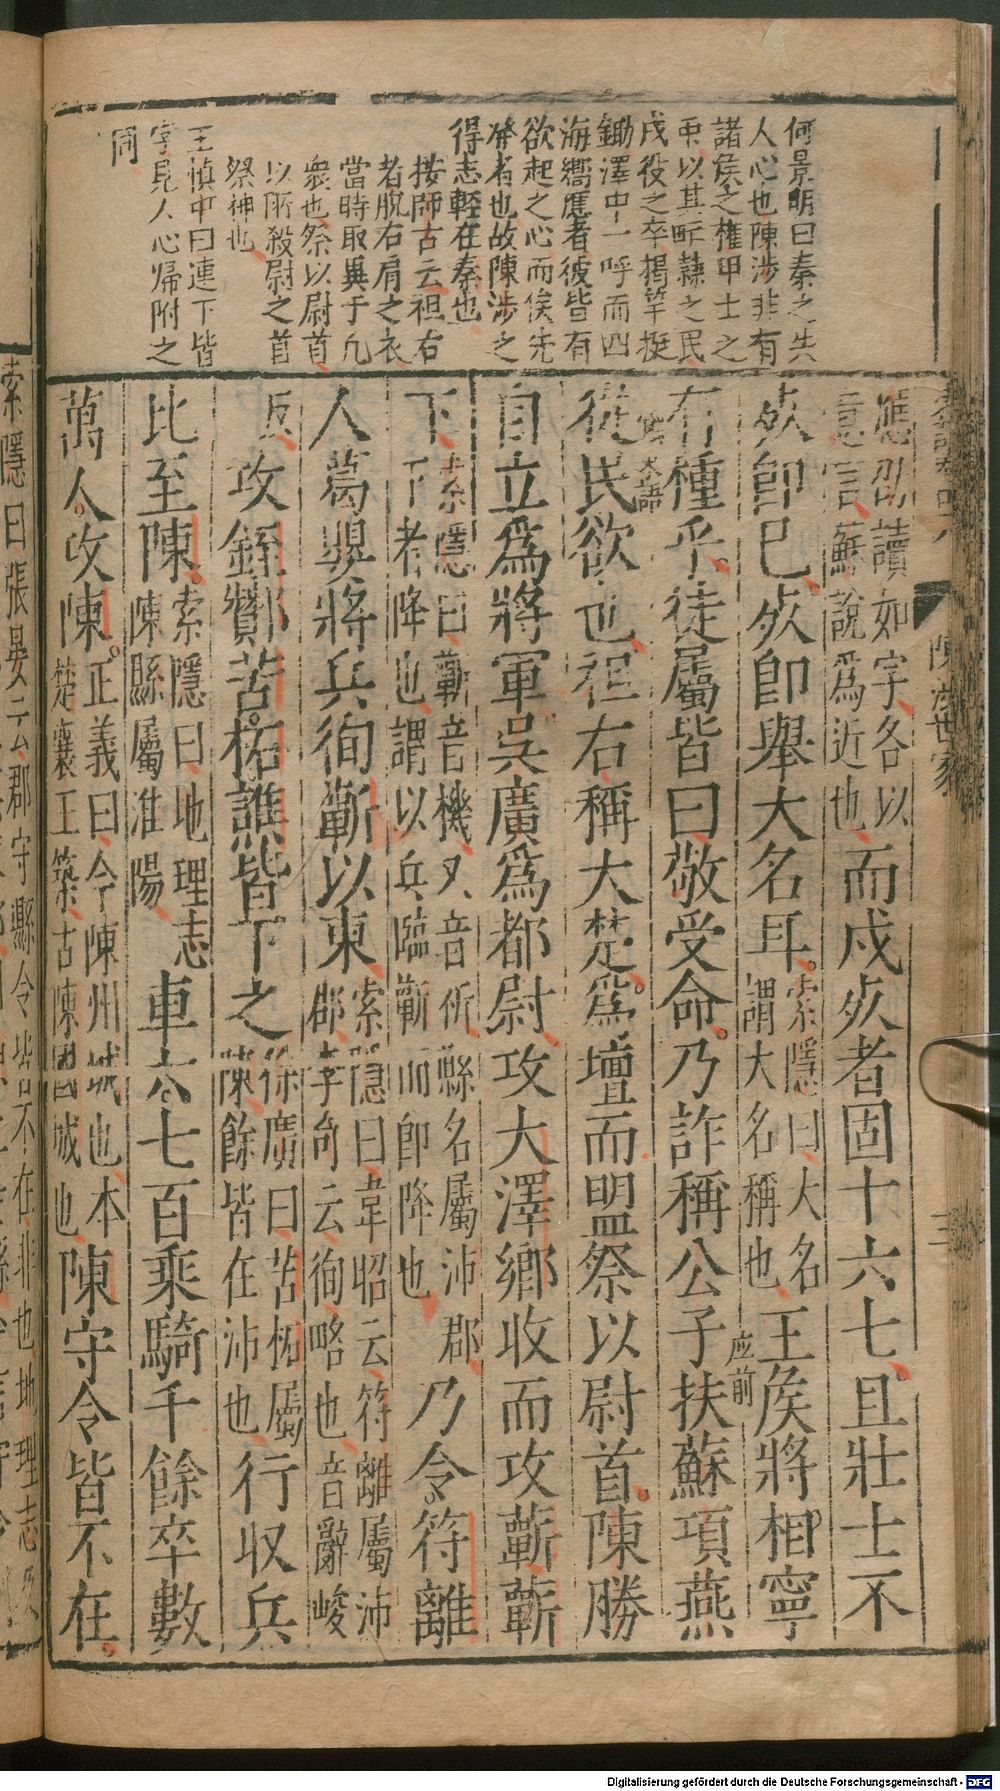 陳涉世家
三
何景明曰秦之失
人心也陳涉非有
諸侯之權甲士之
以其甿隸之民
戍役之卒揭竿挺
鋤澤中一呼而四
海嚮應者彼皆有
欲起之心而俟先
發者也故陳涉之
得志輕在秦也
按師古云袒右
者脫右肩之衣
當時取異于凡
衆也祭以尉首
以所殺尉之首
祭神也
王慎中曰連下皆
字見人心帰附之
同
應劭讀如字各以意言蘇說爲近也而戍死者固十六七且壯士不
死即已死即舉大名耳。索隱曰大名謂大名稱也王侯將相寧
应前
有種乎徒屬皆曰敬受命。乃詐稱公子扶蘇項燕
從民欲也袒右稱大楚。爲壇而盟祭以尉首。陳勝
自立爲將軍吳廣爲都尉攻大澤鄉收而攻蘄蘄
下索隱曰蘄音機又音祈縣名屬沛郡下者降也謂以兵臨蘄而即降也乃令符離
人葛嬰將兵徇蘄以東索隱曰韋昭云符離屬沛郡李奇云徇略也音辭峻
反攻銍酇苦柘譙皆下之徐廣曰苦柘屬陳餘皆在沛也行収兵
比至陳。索隱曰地理志陳縣屬淮陽車六七百乘騎千餘卒數
萬人。攻陳。正義曰今陳州城也本楚襄王築古陳國城也陳守令皆不在。
索隱曰張晏云郡守縣令皆不在非也地理志
Digitalisierung gefördert durch die Deutsche Forschungsgemeinschaft - DFG